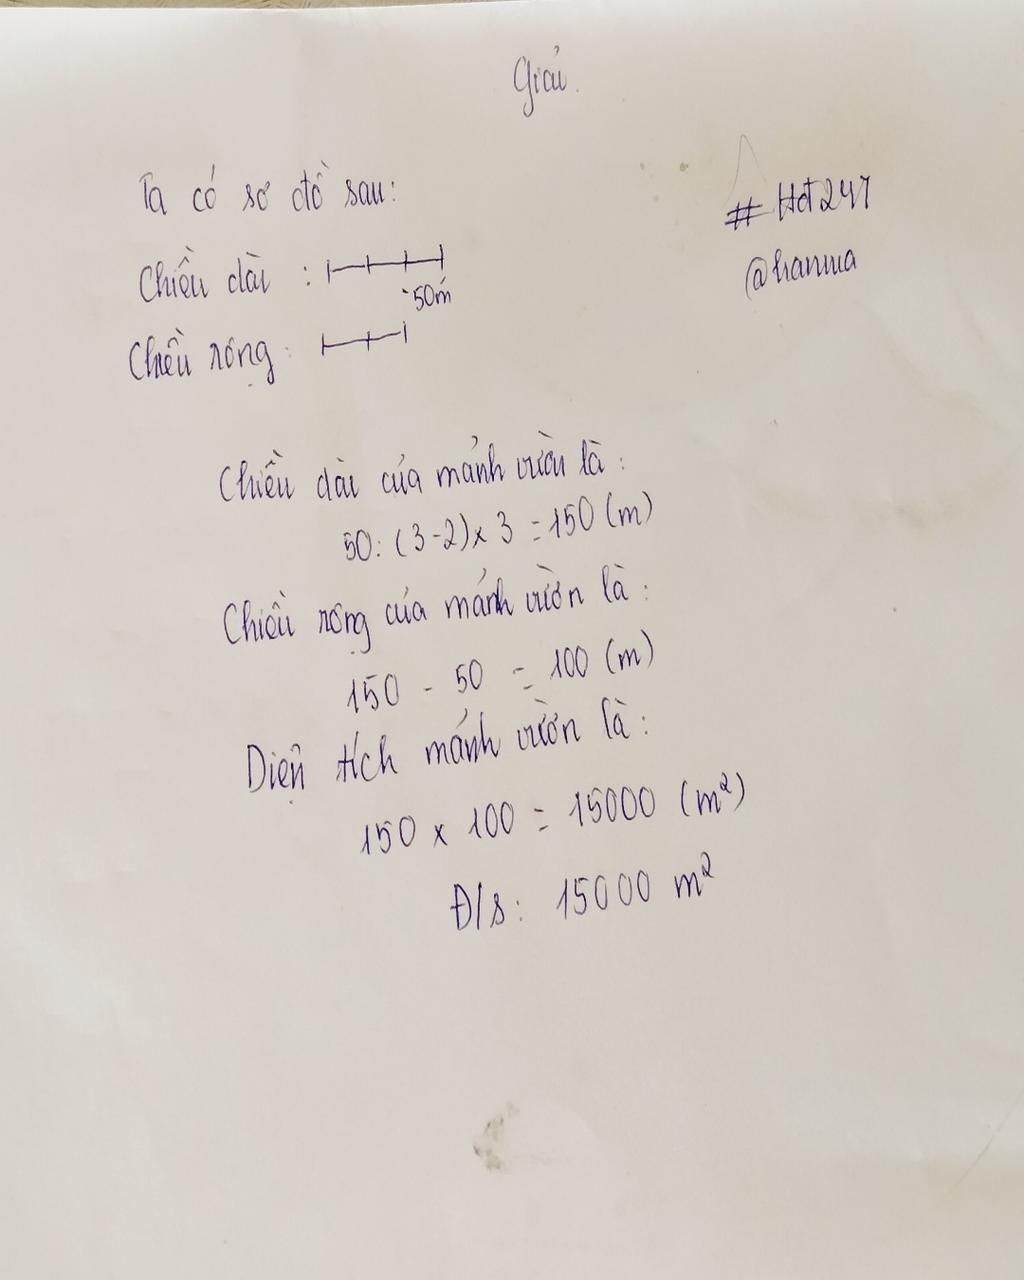 Giải.
Ta có sơ đồ sau:
# Hđ247
@hanna
Chiều dài :
50m
Chiều rộng :
Chiều dài của mảnh vườn là :
50 : (3-2) x 3 = 150 (m)
Chiều rộng của mảnh vườn là :
150 - 50 = 100 (m)
Diện tích mảnh vườn là :
150 x 100 = 15000 (m²)
Đ/s : 15000 m²